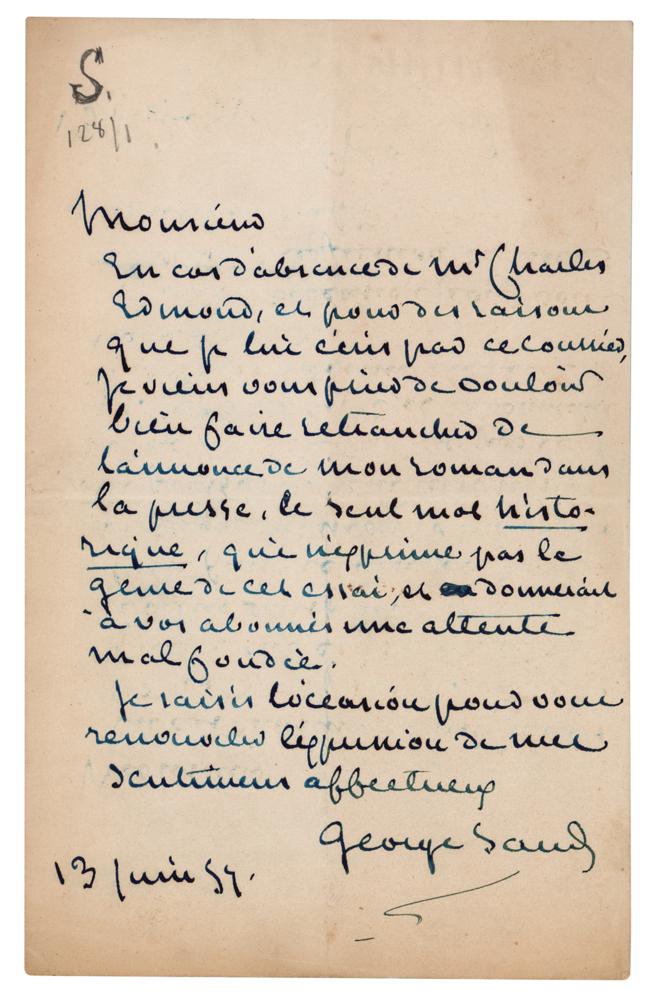 S.
128/1
Monsieur
En cas d'absence de Mr Charles
Edmond, et pour des raisons
que je lui écris par ce courrier,
je viens vous prier de vouloir
bien faire retrancher de
l'annonce de mon roman dans
la presse, le seul mot histo-
rique, qui n'exprime pas le
genre de cet essai, et donnerait
à vos abonnés une attente
mal fondée.
Je saisis l'occasion pour vous
renouveler l'expression de mes
sentimens affectueux
George Sand
13 juin 57.